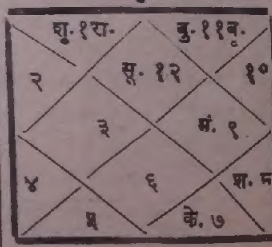 शु. १रा. बु. ११बृ.
२ सू. १२ १०
३ मं. ९
४ ६ श. ८
५ के. ७